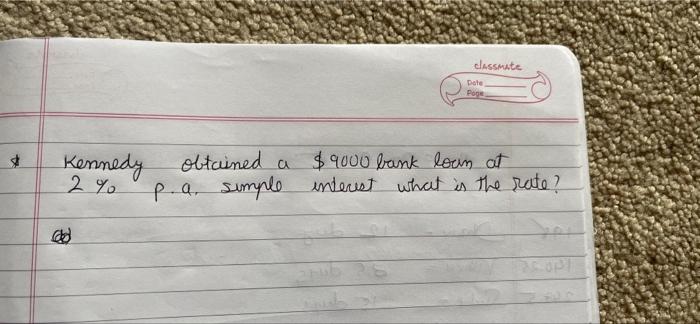 classmate
Date
Page
* Kennedy obtained a $9000 bank loan at
2 % p.a. simple interest what is the rate?